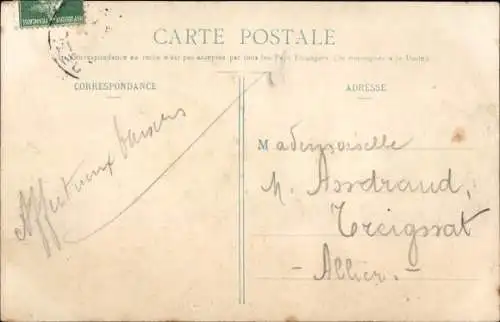 CARTE POSTALE
La Correspondance au recto n'est pas acceptée par tous les Pays Étrangers (Se renseigner à la Poste)
CORRESPONDANCE
ADRESSE
Affectueux baisers
Mademoiselle
M. Assdraud,
Treignat
- Allier. -